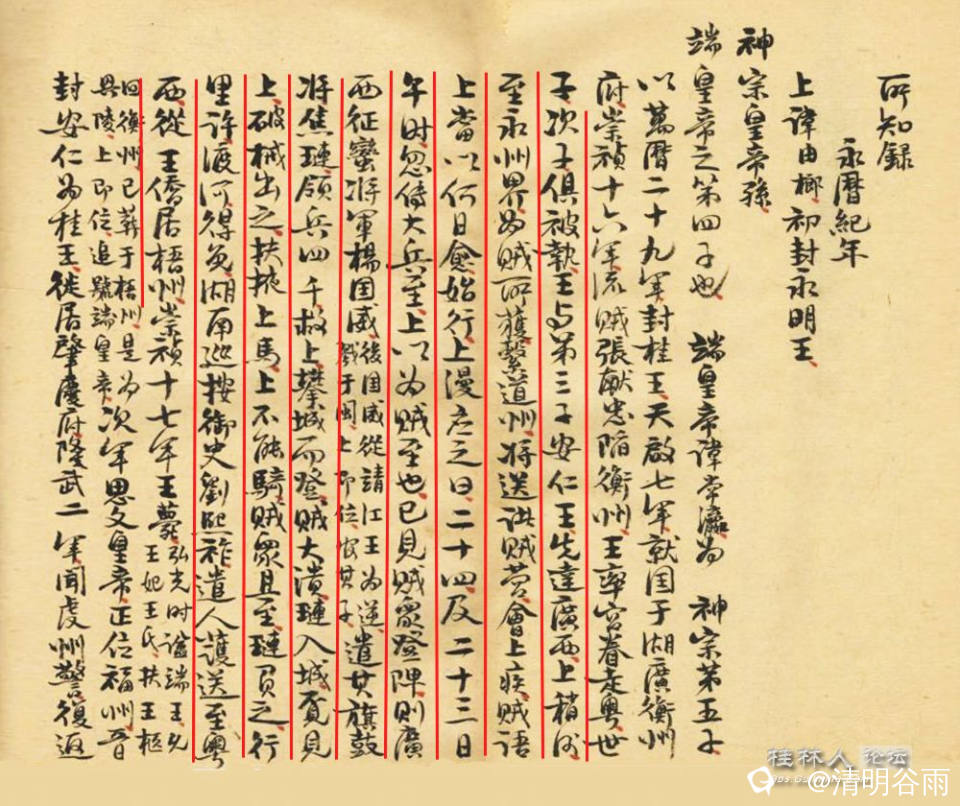 所知録
永曆紀年
上諱由榔初封永明王
神宗皇帝孫
端皇帝之第四子也 端皇帝諱常瀛為 神宗第五子
以萬曆二十九年封桂王天啟七年就国于湖廣衡州
府崇禎十六年流賊張献忠陷衡州王率宮眷走粤世
子次子俱被執王与第三子安仁王先達廣西上稍後
至永州界為賊所獲繫道州将送洪賊营會上疾賊語
上當以何日愈始行上漫应之曰二十四及二十三日
午时忽传大兵至上以为賊至也已見賊眾登陴則廣
西征蠻将軍楊国威後国威從靖江王為逆戮于闽上即位官其子遣其旗鼓
将焦璉領兵四千救上攀城而登賊大潰璉入城覓見
上破械出之扶掖上馬上不能騎賊眾且至璉負之行
里許渡河得免湖南巡按御史劉熙祚遣人護送至粤
西從王僑居梧州崇禎十七年王薨弘光时諡端王王妃王氏扶王柩
回衡州已葬于梧州是为興陵上即位追號端皇帝次年思文皇帝正位福州晋
封安仁为桂王徙居肇慶府隆武二年闻虔州警復返
桂林人论坛
@清明谷雨